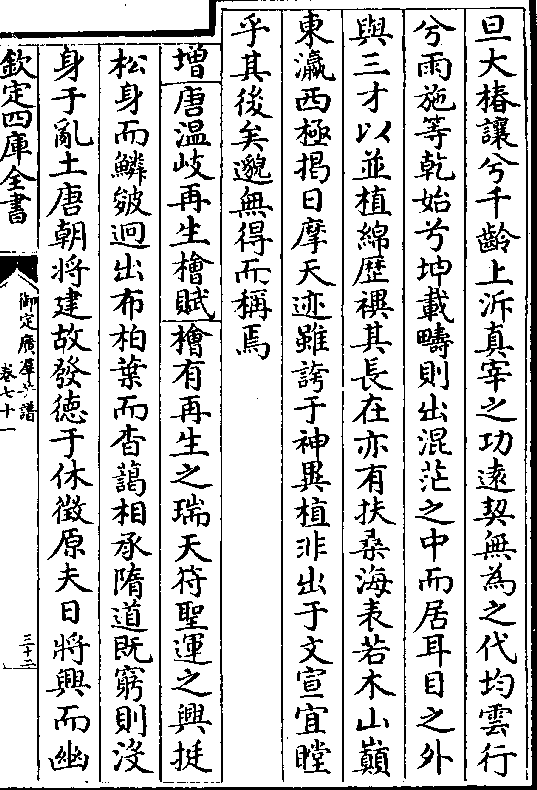 旦大椿讓兮千齡上泝真宰之功遠契無為之代均雲行
兮雨施等乾始兮坤載疇則出混茫之中而居耳目之外
與三才以並植綿歷禩其長在亦有扶桑海表若木山巔
東瀛西極揭日摩天迹雖誇于神異植非出于文宣宜瞠
乎其後矣邈無得而稱焉
增唐温岐再生檜賦檜有再生之瑞天符聖運之興挺
松身而鱗皴迥出布柏葉而杳藹相承隋道既窮則沒
身于亂土唐朝將建故發德于休徵原夫日將興而幽
欽定四庫全書
御定廣羣芳譜
卷七十一
三十二